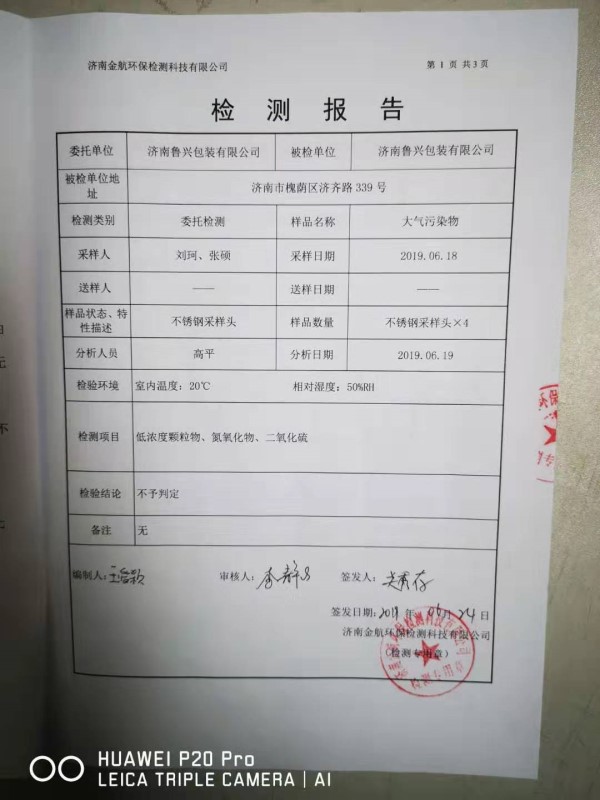 济南金航环保检测科技有限公司 第 1 页 共3页
检 测 报 告
委托单位 济南鲁兴包装有限公司 被检单位 济南鲁兴包装有限公司
被检单位地
址 济南市槐荫区济齐路 339 号
检测类别 委托检测 样品名称 大气污染物
采样人 刘珂、张硕 采样日期 2019.06.18
送样人 —— 送样日期 ——
样品状态、特
性描述 不锈钢采样头 样品数量 不锈钢采样头×4
分析人员 高平 分析日期 2019.06.19
检验环境 室内温度：20℃ 相对湿度：50%RH
检测项目 低浓度颗粒物、氮氧化物、二氧化硫
检验结论 不予判定
备注 无
编制人： 审核人： 签发人：
签发日期：2019 年 06 月 24 日
济南金航环保检测科技有限公司
（检测专用章）
检测专用章
HUAWEI P20 Pro
LEICA TRIPLE CAMERA | AI